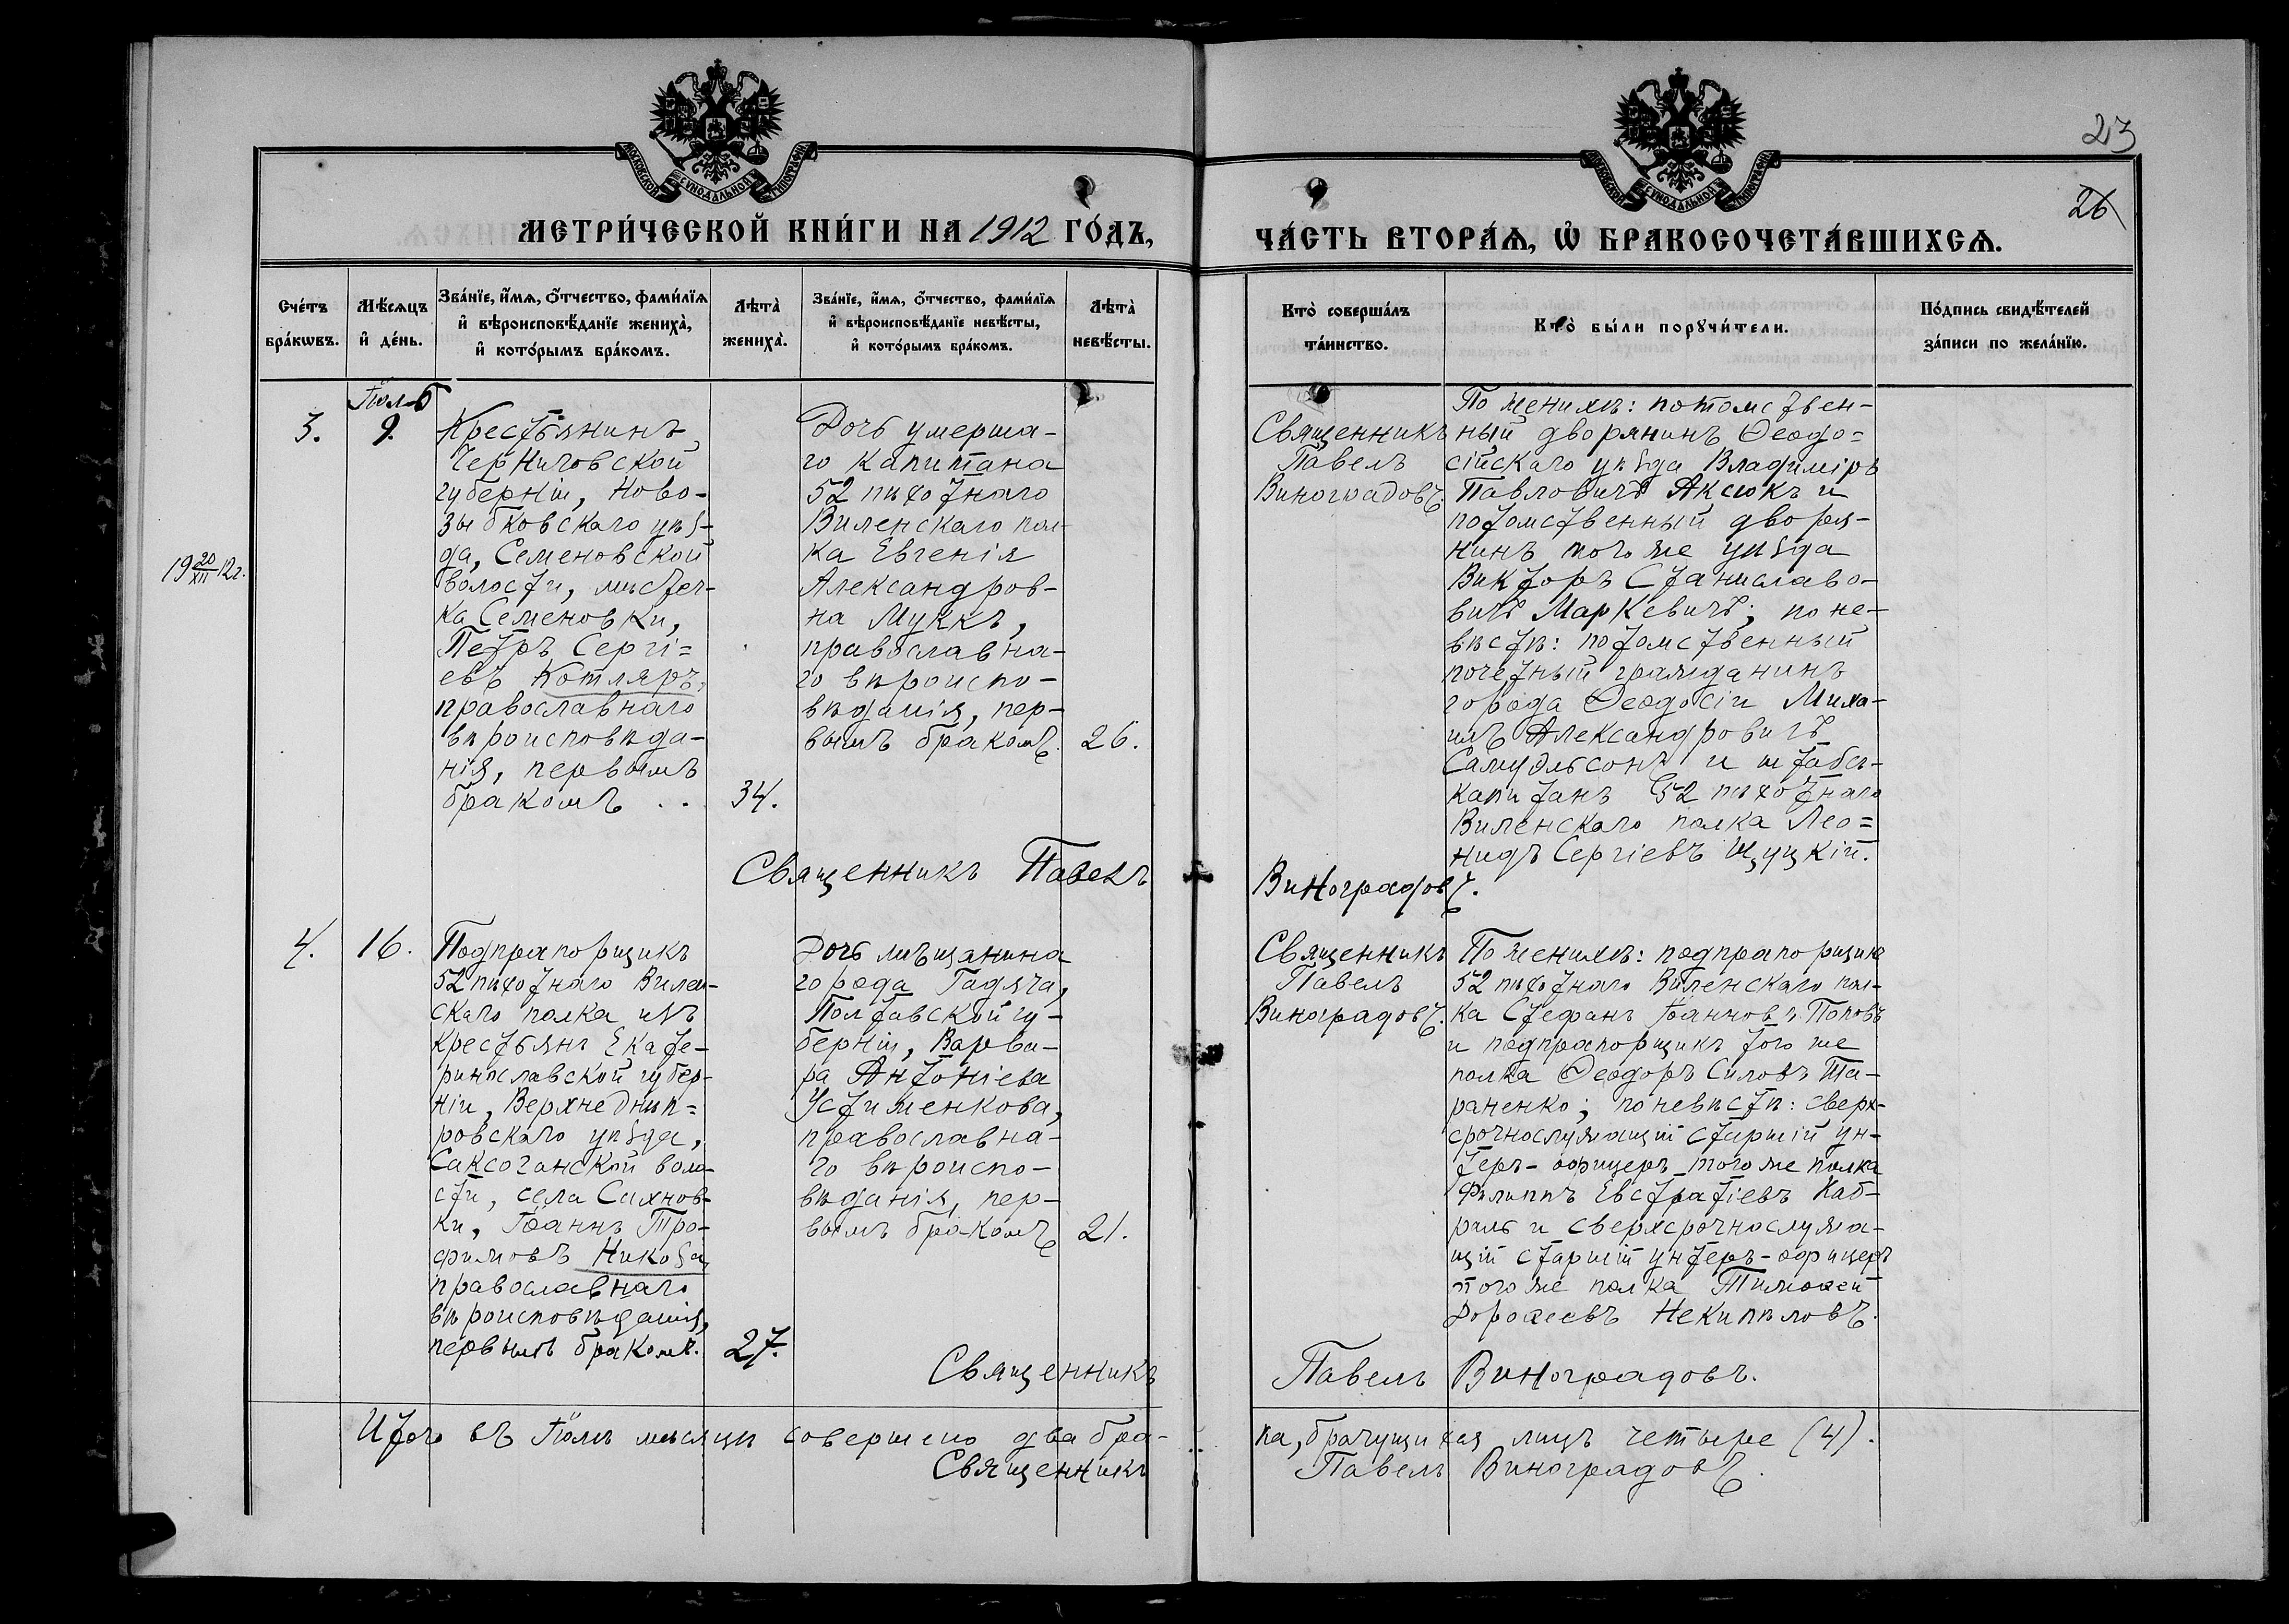 23
26
МОСКОВСКОЙ СѴНОДАЛЬНОЙ ТИПОГРАФІИ
МОСКОВСКОЙ СѴНОДАЛЬНОЙ ТИПОГРАФІИ
МЕТРИ́ЧЕСКОЙ КНИ́ГИ НА 1912 ГО́ДЪ,
ЧА́СТЬ ВТОРА́Ѧ, Ѡ҆ БРАКОСОЧЕТА́ВШИХСѦ.
Сче́тъ
бра́кѡвъ.
Мѣ́сяцъ
и҆ де́нь.
Зва́нїе, и҆́мѧ, ѻ҆́тчество, фами́лїѧ
и҆ вѣроисповѣ́данїе жениха̀,
и҆ кото́рымъ бра́комъ.
Лѣта̀
жениха̀.
Зва́нїе, и҆́мѧ, ѻ҆́тчество, фами́лїѧ
и҆ вѣроисповѣ́данїе невѣ́сты,
и҆ кото́рымъ бра́комъ.
Лѣта̀
невѣ́сты.
Кто̀ соверша́лъ
та́инство.
Кто̀ бы́ли порꙋчи́тели.
По́дпись свидѣ́телей
за́писи по жела́нїю.
19 20/XII 12 г.
3.
Іюль
9.
Крестьянинъ
Черниговской
губерніи, Ново-
зыбковскаго уѣз-
да, Семеновской
волости, мѣстеч-
ка Семеновки,
Петръ Сергі=
евъ Котляръ,
православнаго
вѣроисповѣда-
нія, первымъ
бракомъ . .
34.
Дочь умерша-
го капитана
52 пѣхотнаго
Виленскаго пол-
ка Евгенія
Александров-
на Муккъ,
православна-
го вѣроиспо-
вѣданія, пер-
вымъ бракомъ.
26.
Священникъ
Павелъ
Виноградовъ.
По женихѣ: потомствен-
ный дворянинъ Ѳеодо=
сійскаго уѣзда Владиміръ
Павловичъ Аксюкъ и
потомственный дворя-
нинъ того же уѣзда
Викторъ Станиславо-
вичъ Маркевичъ; по не-
вѣстѣ: потомственный
почетный гражданинъ
города Ѳеодосіи Миха-
илъ Александровичъ
Самуэльсонъ и штабсъ-
капитанъ 52 пѣхотнаго
Виленскаго полка Лео=
нидъ Сергіевъ Щуцкій.
Священникъ Павелъ Виноградовъ.
4.
16.
Подпрапорщикъ
52 пѣхотнаго Вилен-
скаго полка изъ
крестьянъ Екате-
ринославской губер-
ніи, Верхнеднѣп=
ровскаго уѣзда,
Саксаганской воло-
сти, села Сахнов-
ки, Іоаннъ Тро-
фимовъ Никоза,
православнаго
вѣроисповѣданія,
первымъ бракомъ.
27.
Дочь мѣщанина
города Гадяча,
Полтавской гу-
берніи, Варва-
ра Антоніева
Устименкова,
православна-
го вѣроиспо-
вѣданія, пер-
вымъ бракомъ
21.
Священникъ
Павелъ
Виноградовъ.
По женихѣ: подпрапорщикъ
52 пѣхотнаго Виленскаго пол-
ка Стефанъ Іоанновъ Поповъ
и подпрапорщикъ того же
полка Ѳеодоръ Силовъ Та-
раненко; по невѣстѣ: сверх-
срочнослужащій старшій ун-
теръ-офицеръ того же полка
Филиппъ Евстратіевъ
и сверхсрочнослужа-
щій старшій унтеръ-офицеръ
того же полка Тимоѳей
Дороѳеевъ Некипѣловъ.
Священникъ Павелъ Виноградовъ.
Итого въ Іюлѣ мѣсяцѣ совершено два бра-
ка, брачущихся лицъ четыре (4).
Священникъ Павелъ Виноградовъ.